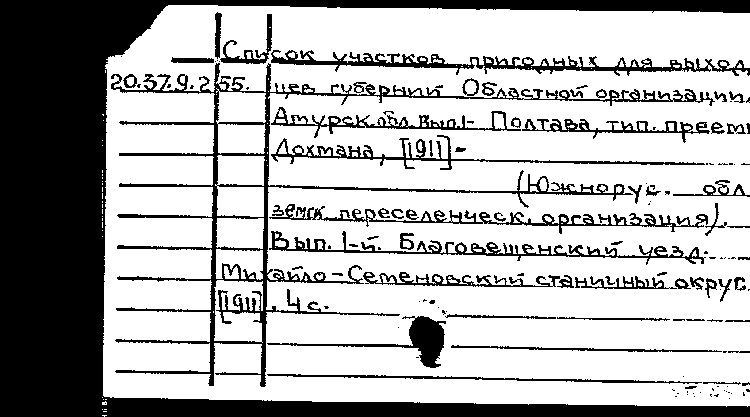 Список участков, пригодных для выход
20.37.9.255. цев губернии Областной организации.
Амурск. обл. Вып. 1- Полтава, тип. преем
Дохмана, [1911] -
(Южнорус. обл
земск. переселенческ. организация).
Вып. 1-й. Благовещенский уезд.
Михайло-Семеновский станичный округ.
[1911]. 4 с.